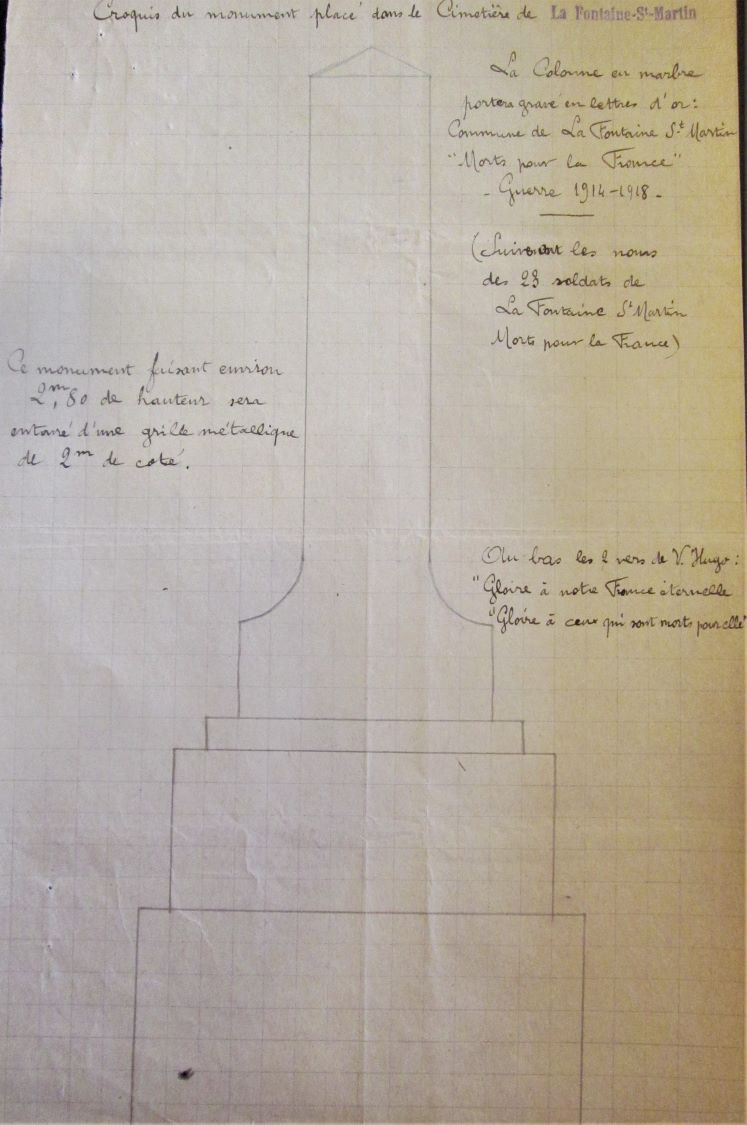 Croquis du monument placé dans le Cimetière de La Fontaine-St-Martin
La Colonne en marbre
portera gravé en lettres d'or:
Commune de La Fontaine St Martin
"Morts pour la France"
- Guerre 1914-1918 -
(Suivent les noms
des 23 soldats de
La Fontaine St Martin
Morts pour la France)
Ce monument faisant environ
2m,80 de hauteur sera
entouré d'une grille métallique
de 2m de coté.
Au bas les 2 vers de V. Hugo:
"Gloire à notre France éternelle
"Gloire à ceux qui sont morts pour elle"